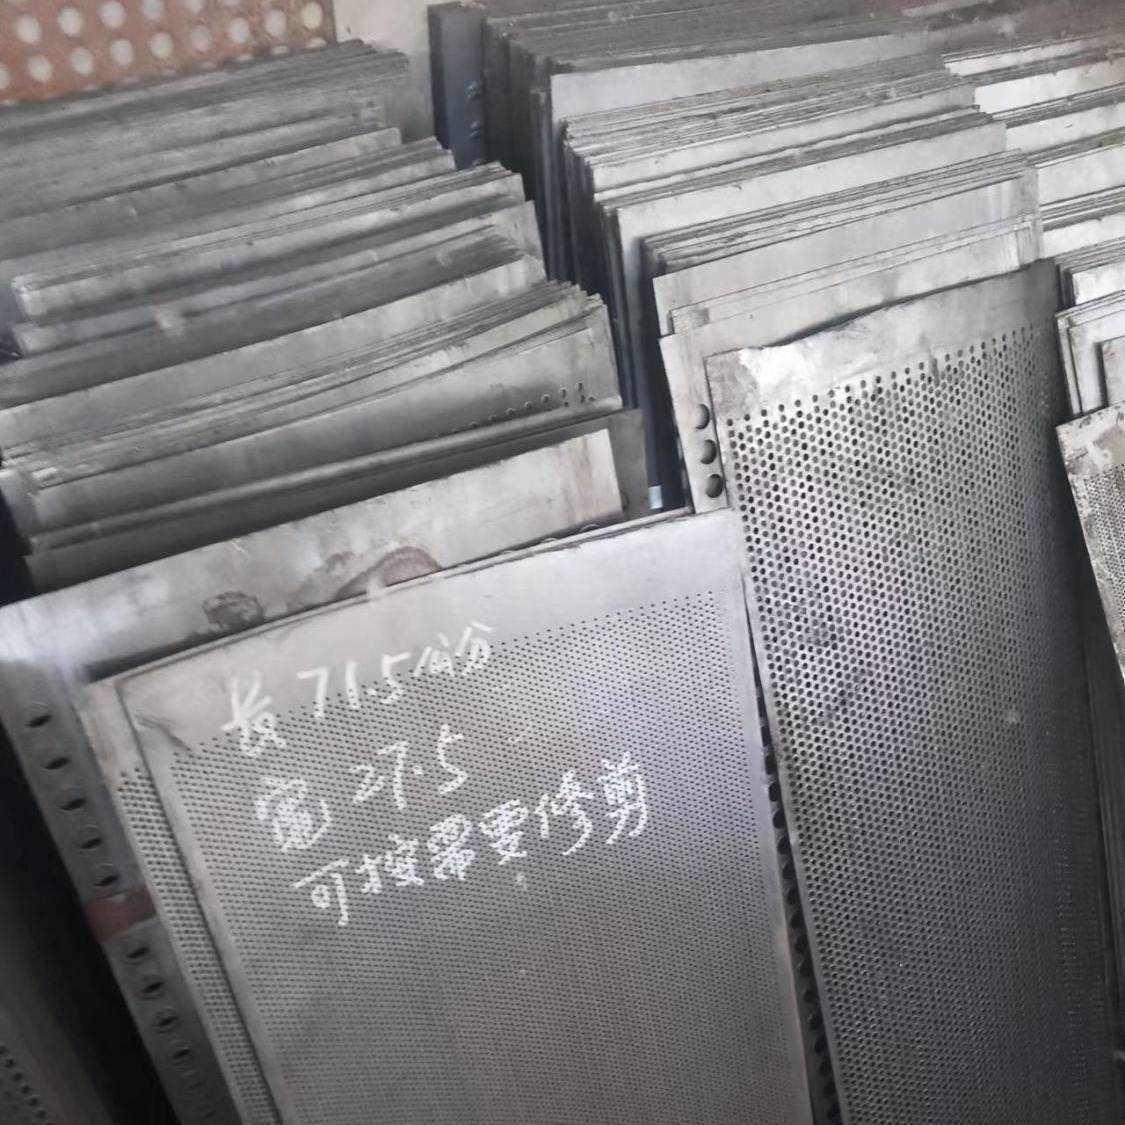 长71.5公分
宽27.5
可按需要修剪